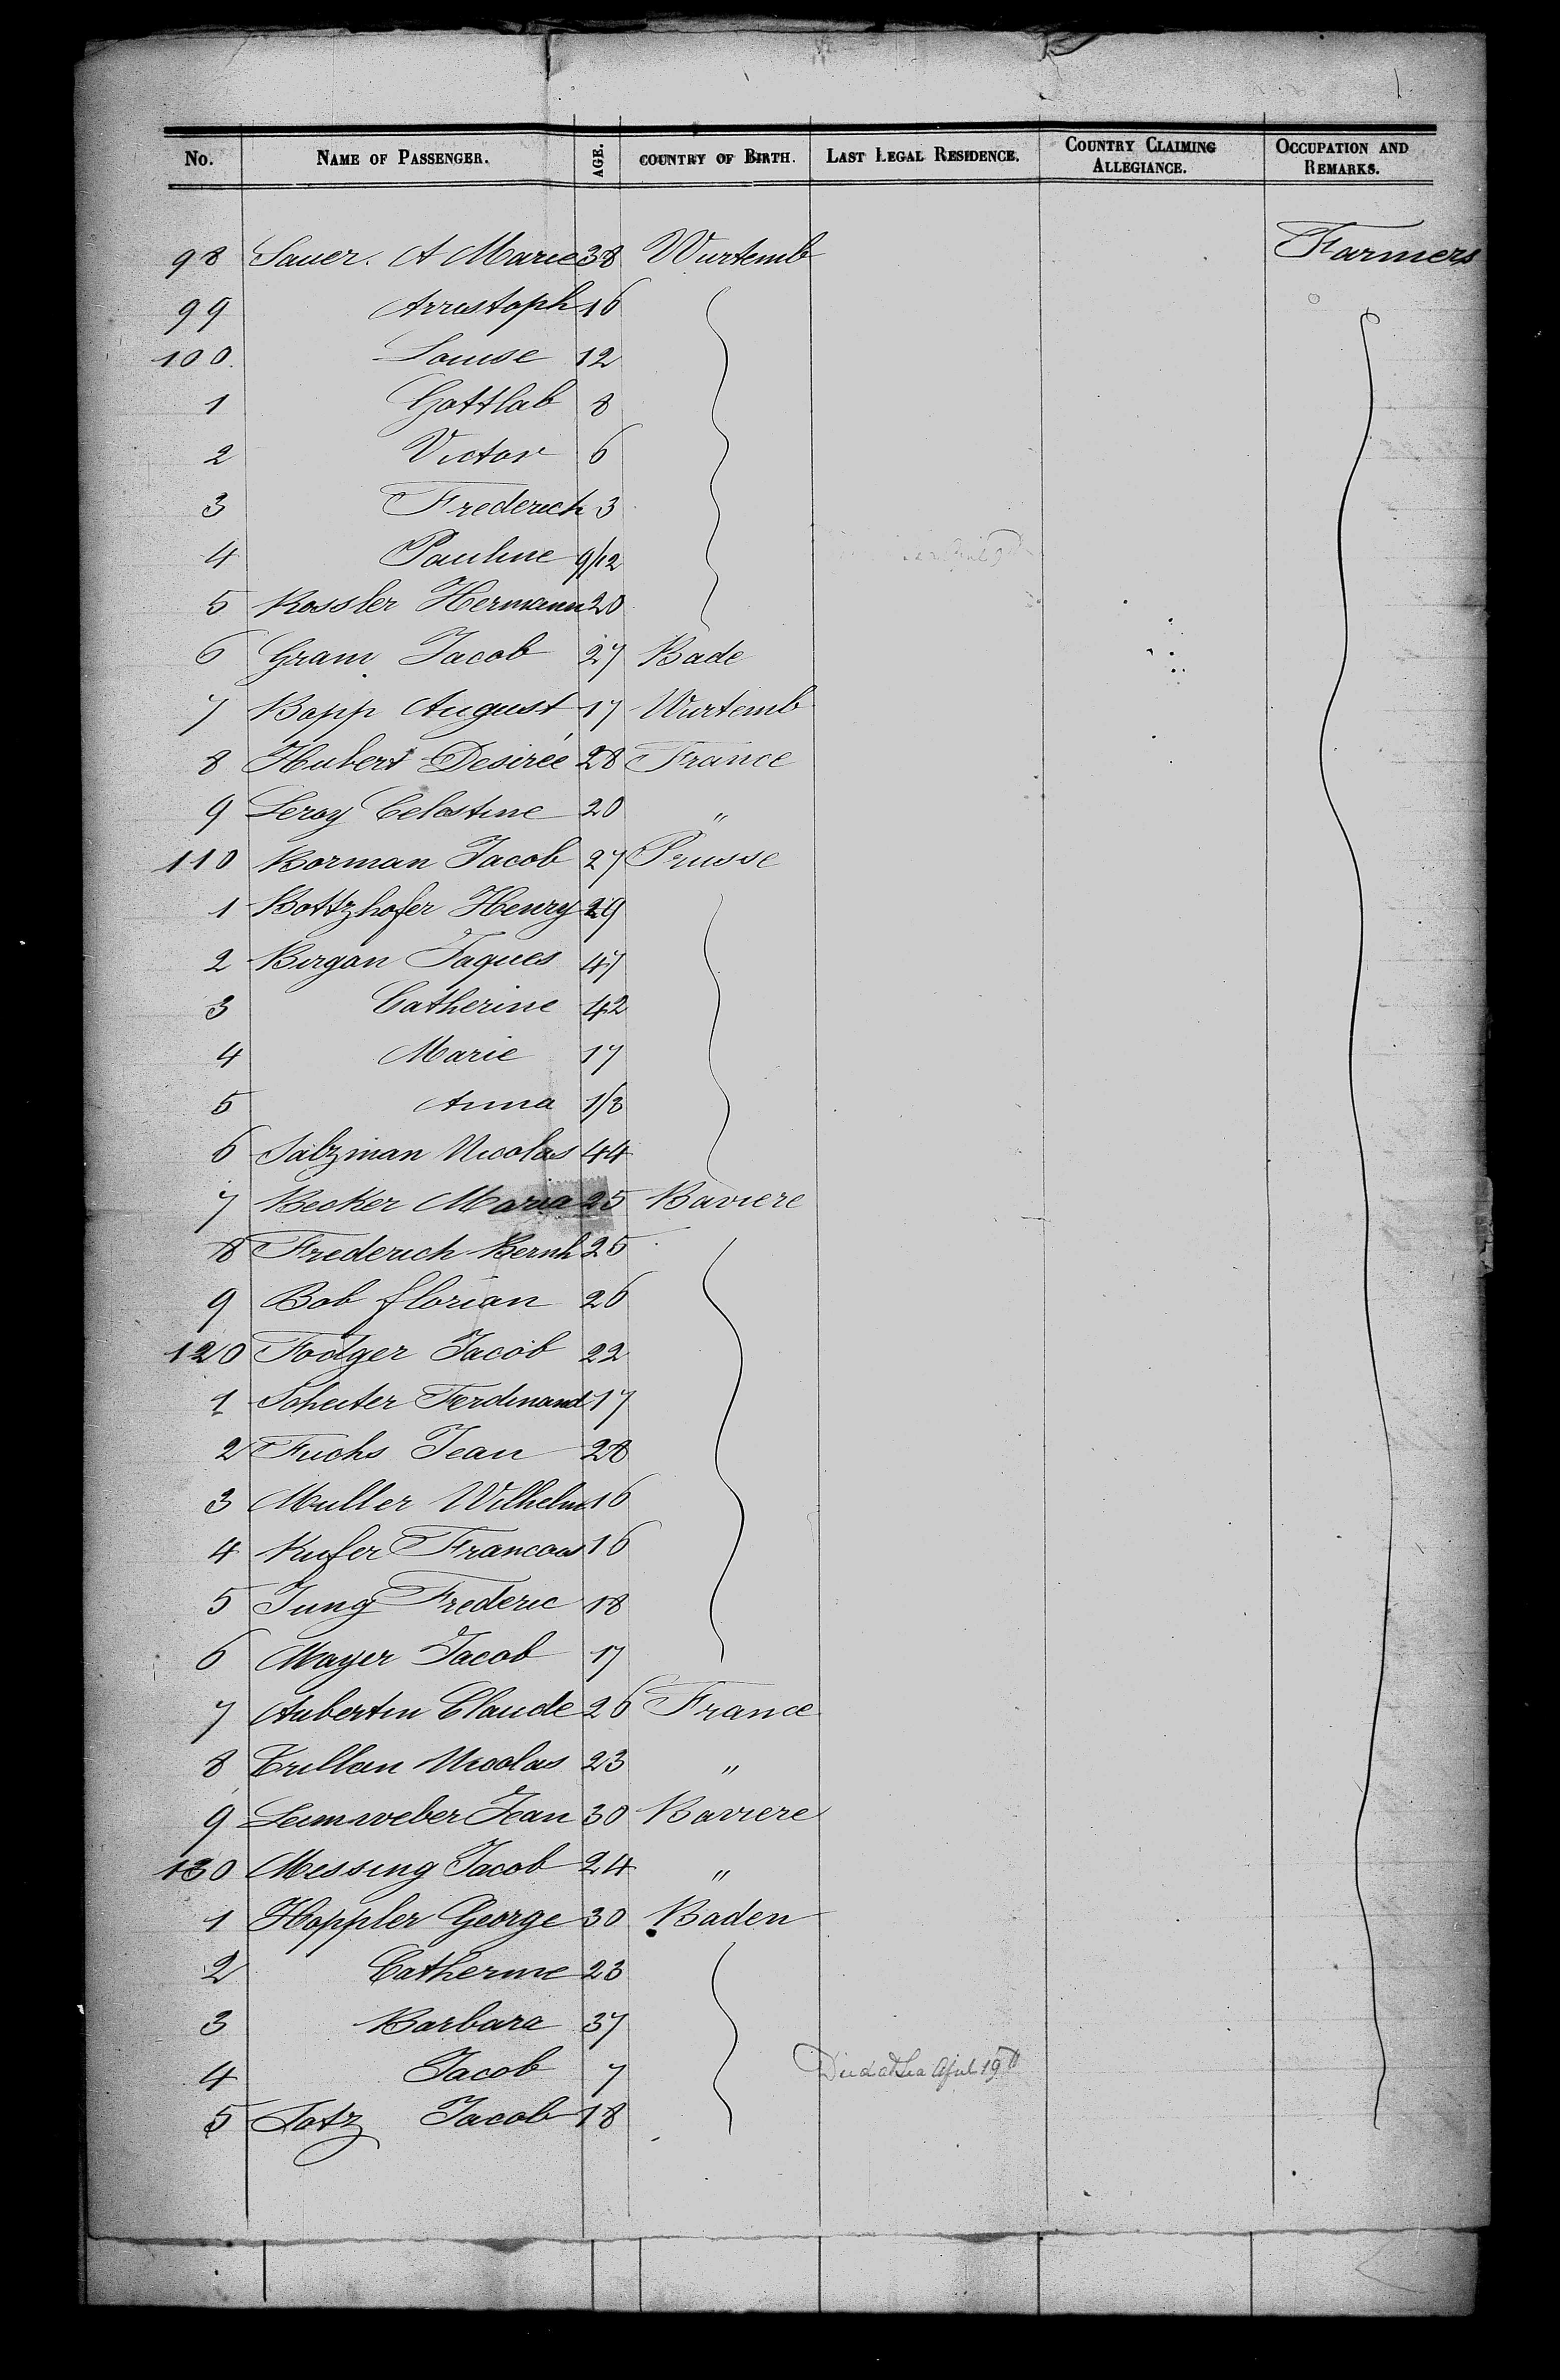 No. NAME OF PASSENGER. AGE. COUNTRY OF BIRTH. LAST LEGAL RESIDENCE. COUNTRY CLAIMING ALLEGIANCE. OCCUPATION AND REMARKS.
98 Sauer. A Marie 38 Wurtemb Farmers
99 Arristoph 16
100. Louise 12
1 Gottlab 8
2 Victor 6
3 Frederich 3
4 Pauline 9/12
5 Kossler Hermann 20
6 Gram Jacob 27 Bade
7 Bopp August 17 Wurtemb
8 Hubert Desirée 28 France
9 Leroy Celestine 20 "
110 Borman Jacob 27 Prusse
1 Bottzhofer Henry 29
2 Birgan Jaques 47
3 Catherine 42
4 Marie 17
5 Anna 1/3
6 Salzman Nicolas 44
7 Becker Maria 25 Baviere
8 Frederich Bernh 25
9 Bob florian 26
120 Fodger Jacob 22
1 Scheiter Ferdinand 17
2 Fuchs Jean 28
3 Muller Wilhelm 16
4 Kufer Francois 16
5 Jung Frederic 18
6 Mayer Jacob 17
7 Aubertin Claude 26 France
8 Crillan Nicolas 23 "
9 Leimweber Jean 30 Baviere
130 Messing Jacob 24 "
1 Hoppler George 30 Baden
2 Catherine 23
3 Barbara 37
4 Jacob 7 Died at Sea April 19th
5 Totz Jacob 18